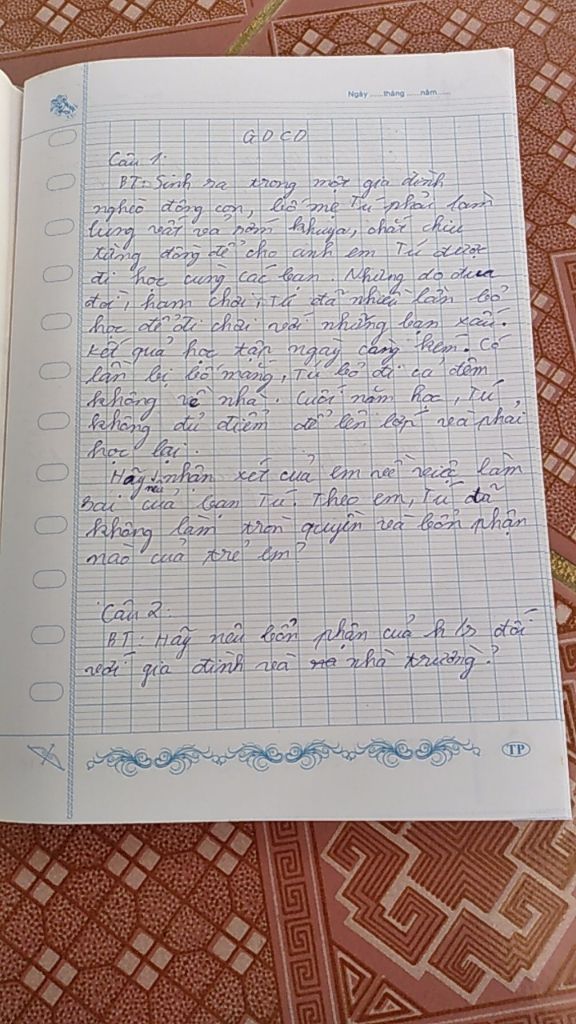 Ngày ......tháng ......năm......
GDCD
Câu 1:
BT: Sinh ra trong một gia đình
nghèo đông con, bố mẹ Tú phải làm
lụng vất vả sớm khuya, chắt chiu
từng đồng để cho anh em Tú được
đi học cùng các bạn. Nhưng do đua
đòi, ham chơi, Tú đã nhiều lần bỏ
học để đi chơi với những bạn xấu.
Kết quả học tập ngày càng kém. Có
lần bị bố mắng, Tú bỏ đi cả đêm
không về nhà. Cuối năm học, Tú
không đủ điểm để lên lớp và phải
học lại.
Hãy nêu nhận xét của em về việc làm
sai của bạn Tú. Theo em, Tú đã
không làm tròn quyền và bổn phận
nào của trẻ em?
Câu 2:
BT: Hãy nêu bổn phận của h/s đối
với gia đình và nhà trường?
TP